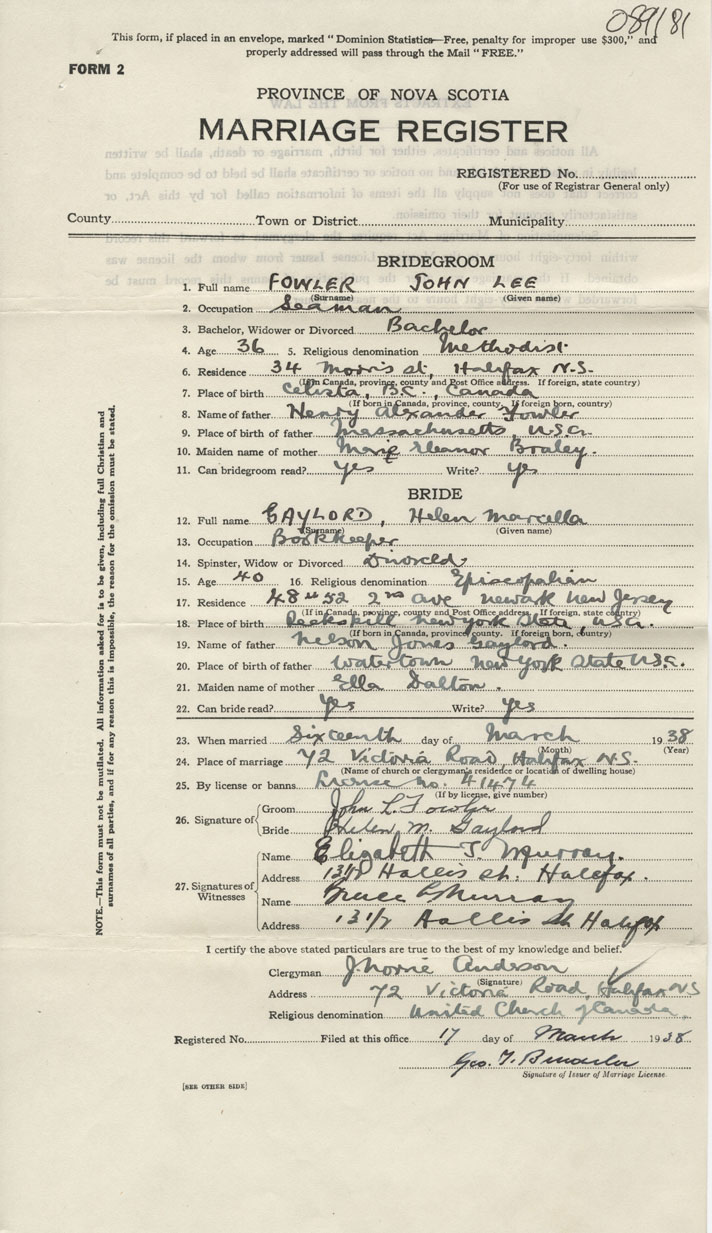 089181
This form, if placed in an envelope, marked " Dominion Statistics—Free, penalty for improper use $300," and
properly addressed will pass through the Mail " FREE."
FORM 2
PROVINCE OF NOVA SCOTIA
MARRIAGE REGISTER
REGISTERED No.
(For use of Registrar General only)
County Town or District Municipality
BRIDEGROOM
1. Full name FOWLER JOHN LEE
(Surname) (Given name)
2. Occupation Seaman
3. Bachelor, Widower or Divorced Bachelor
4. Age 36 5. Religious denomination Methodist
6. Residence 34 Morris st, Halifax N.S.
(If in Canada, province, county and Post Office address. If foreign, state country)
7. Place of birth Celista, B.C., Canada
(If born in Canada, province, county. If foreign born, country)
8. Name of father Henry Alexander Fowler
9. Place of birth of father Massachusetts, U.S.A.
10. Maiden name of mother Marie Eleanor Braley.
11. Can bridegroom read? Yes Write? Yes
BRIDE
12. Full name GAYLORD, Helen Marcella
(Surname) (Given name)
13. Occupation Bookkeeper
14. Spinster, Widow or Divorced Divorced
15. Age 40 16. Religious denomination Episcopalian
17. Residence 48 52 2nd ave Newark New Jersey
(If in Canada, province, county and Post Office address. If foreign, state country)
18. Place of birth Peekskill New York State, U.S.A.
(If born in Canada, province, county. If foreign born, country)
19. Name of father Nelson Jones Gaylord.
20. Place of birth of father Watertown New York State U.S.A.
21. Maiden name of mother Ella Dalton.
22. Can bride read? Yes Write? Yes
23. When married Sixteenth day of March 1938
(Month) (Year)
24. Place of marriage 72 Victoria Road, Halifax N.S.
(Name of church or clergyman's residence or location of dwelling house)
25. By license or banns License no. 41474
(If by license, give number)
26. Signature of Groom John L. Fowler
Bride Helen M. Gaylord
27. Signatures of Witnesses Name Elizabeth J. Murray.
Address 131½ Hollis st. Halifax.
Name Murray
Address 131½ Hollis St Halifax
I certify the above stated particulars are true to the best of my knowledge and belief.
Clergyman Anderson
(Signature)
Address 72 Victoria Road, Halifax NS
Religious denomination United Church of Canada.
Registered No. Filed at this office 17 day of March 1938
Geo. F.
Signature of Issuer of Marriage License.
[SEE OTHER SIDE]
NOTE.—This form must not be mutilated. All information asked for is to be given, including full Christian and
surnames of all parties, and if for any reason this is impossible, the reason for the omission must be stated.